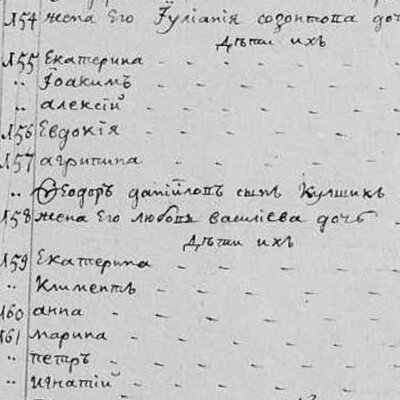 154 жена его Іуліанія созонтова доч
Дѣти ихъ
155 Екатерина
" Іоакимъ
" алексій
156 Евдокія
157 агрипина
" Ѳеодоръ даніиловъ сынъ Кулшикъ
158 жена Его любовь василіева дочь
Дѣти ихъ
159 Екатерина
" Климентъ
160 анна
161 марина
" петръ
" игнатій